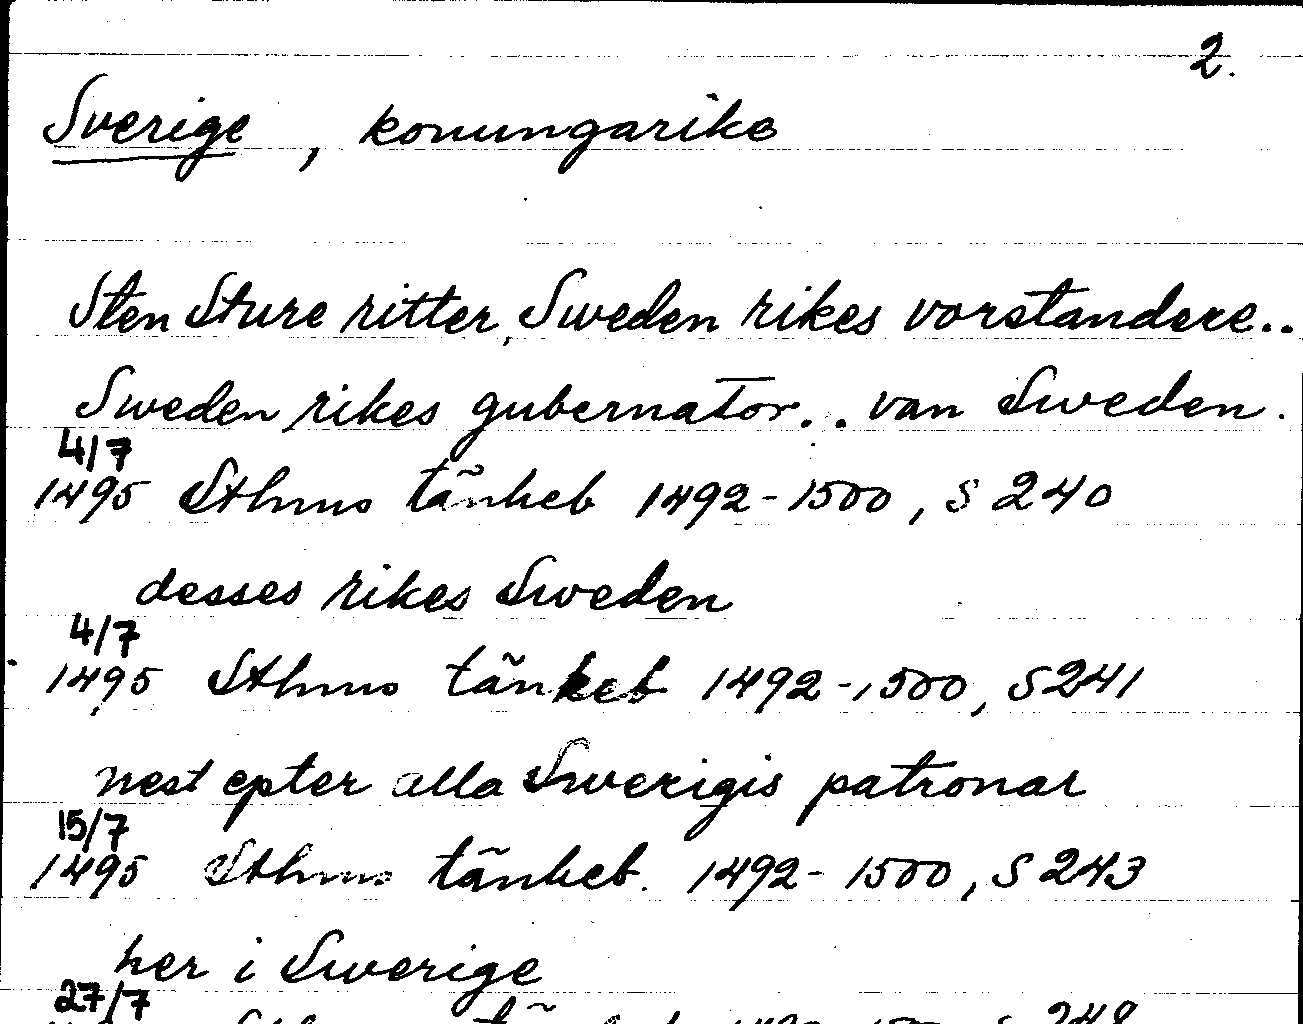 2.
Sverige, konungarike
Sten Sture ritter, Sweden rikes vorstandere..
Sweden rikes gubernator... van Sweden.
4/7
1495 Sthms tänkeb 1492-1500, S 240
desses rikes Sweden
4/7
1495 Sthms tänkeb 1492-1500, S 241
nest epter alla Swerigis patronar
15/7
1495 Sthms tänkeb. 1492-1500, S 243
her i Swerige
27/7